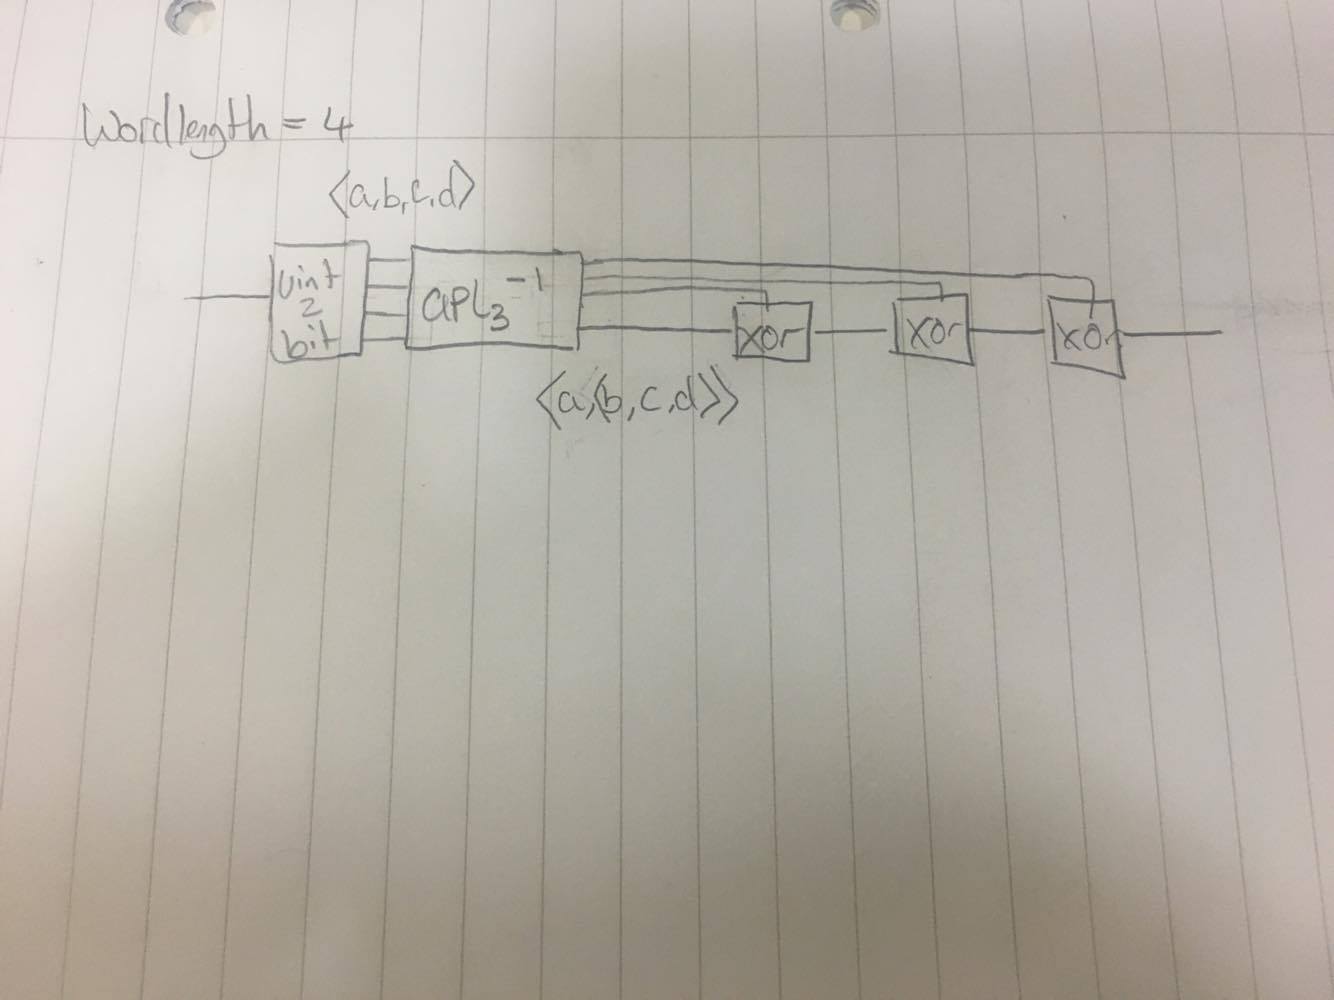 Wordlength = 4
⟨a,b,c,d⟩
Uint
2
bit
apl₃⁻¹
xor
xor
xor
⟨a,⟨b,c,d⟩⟩